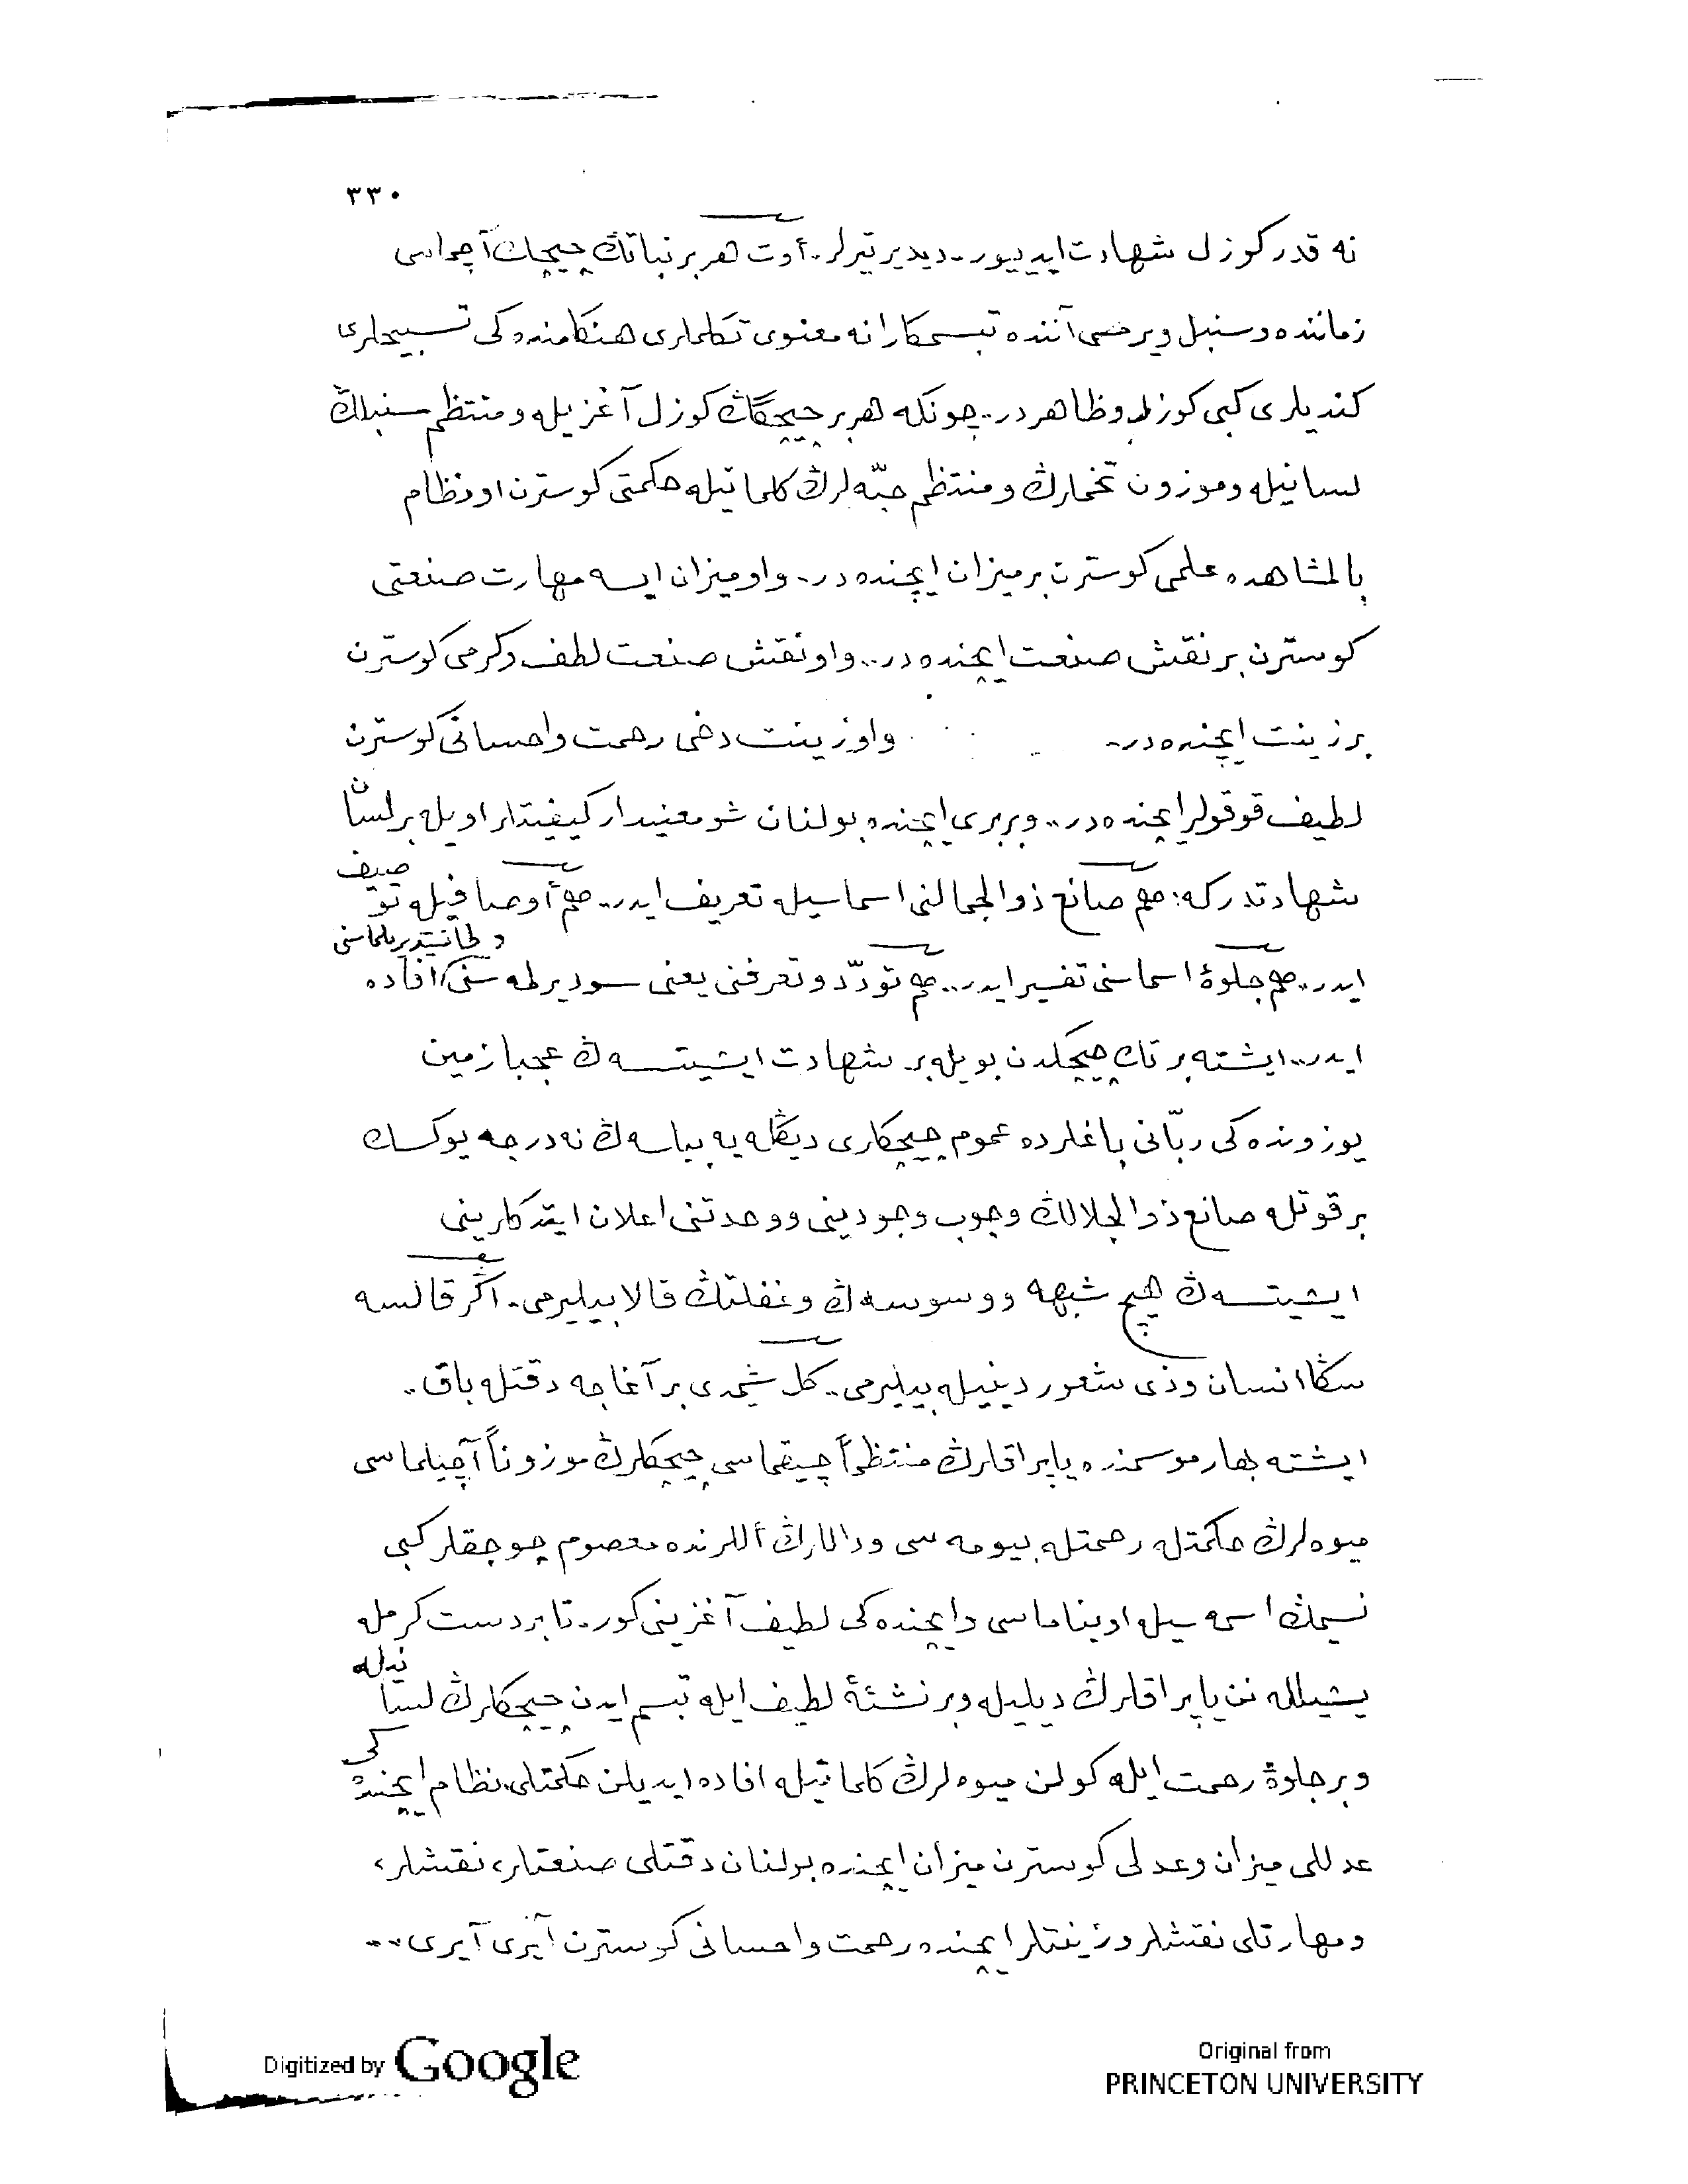 ٣٣٠
نه قدر كوزل شهادت ايدييور.. ديديرتيرلر. أوت هر بر نباتڭ چيچك آچماسى
زماننده و سنبل ويرمسى آننده تبسمكارانه معنوى تكلملرى هنكامنده كى تسبيحلرى
كنديلرى كبى كوزل و ظاهردر.. چونكه هر بر چيچگڭ كوزل آغزيله و منتظم سنبلڭ
لسانيله و موزون تخملرڭ و منتظم حبّه لرڭ كلماتيله حكمتى كوسترن او نظام
بالمشاهده علمى كوسترن بر ميزان ايچنده در.. و او ميزان ايسه مهارت صنعتى
كوسترن بر نقش صنعت ايچنده در.. و او نقش صنعت لطف و كرمى كوسترن
بر زينت ايچنده در.. و او زينت دخى رحمت و احسانى كوسترن
لطيف قوقولر ايچنده در.. و بربرى ايچنده بولنان شو معنيدار كيفيتلر اويله بر لسان
شهادتدر كه: هم صانع ذوالجمالنى اسماسيله تعريف ايدر.. هم أوصافيله توصيف
ايدر.. هم جلوۀ اسماسنى تفسير ايدر.. هم تودّد و تعرفنى يعنى سوديرلمه سنى و طانيتديريلماسنى افاده
ايدر.. ايشته بر تك چيچكدن بويله بر شهادت ايشيتسه ڭ عجبا زمين
يوزونده كى ربّانى باغلرده عموم چيچكلرى ديڭله يه بيلسه ڭ نه درجه يوكسك
بر قوتله صانع ذوالجلالڭ وجوب وجودينى و وحدتنى اعلان ايتدكلرينى
ايشيتسه ڭ هيچ شبهه و وسوسه ڭ و غفلتڭ قالابيليرمى. اگر قالسه
سڭا انسان و ذى شعور دينيله بيليرمى.. كل شيمدى بر آغاجه دقتله باق..
ايشته بهار موسمنده ياپراقلرڭ منتظماً چيقماسى چيچكلرڭ موزوناً آچيلماسى
ميوه لرڭ حكمتله رحمتله بيومه سى و دالارڭ أللرنده معصوم چوجقلر كبى
نسيمڭ اسمه سيله اويناماسى و ايچنده كى لطيف آغزينى كور. تا بر دست كرمله
يشيللنه نن ياپراقلرڭ ديليله و بر نشئۀ لطيف ايله تبسم ايدن چيچكلرڭ لسانيله
و بر جلوۀ رحمت ايله كولن ميوه لرڭ كلماتيله افاده ايديلن حكمتلى نظام ايچنده كى
عدللى ميزان و عدلى كوسترن ميزان ايچنده بولنان دقتلى صنعتلر، نقشلر،
و مهارتلى نقشلر و زينتلر ايچنده رحمت و احسانى كوسترن آيرى آيرى...
Digitized by Google
Original from
PRINCETON UNIVERSITY